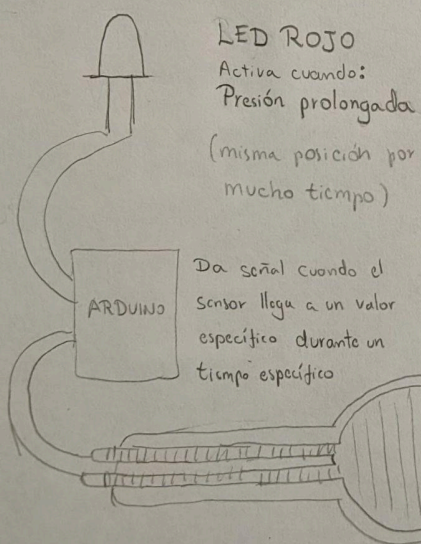 LED ROJO
Activa cuando:
Presión prolongada
(misma posición por
mucho tiempo)
ARDUINO
Da señal cuando el
sensor llega a un valor
específico durante un
tiempo específico